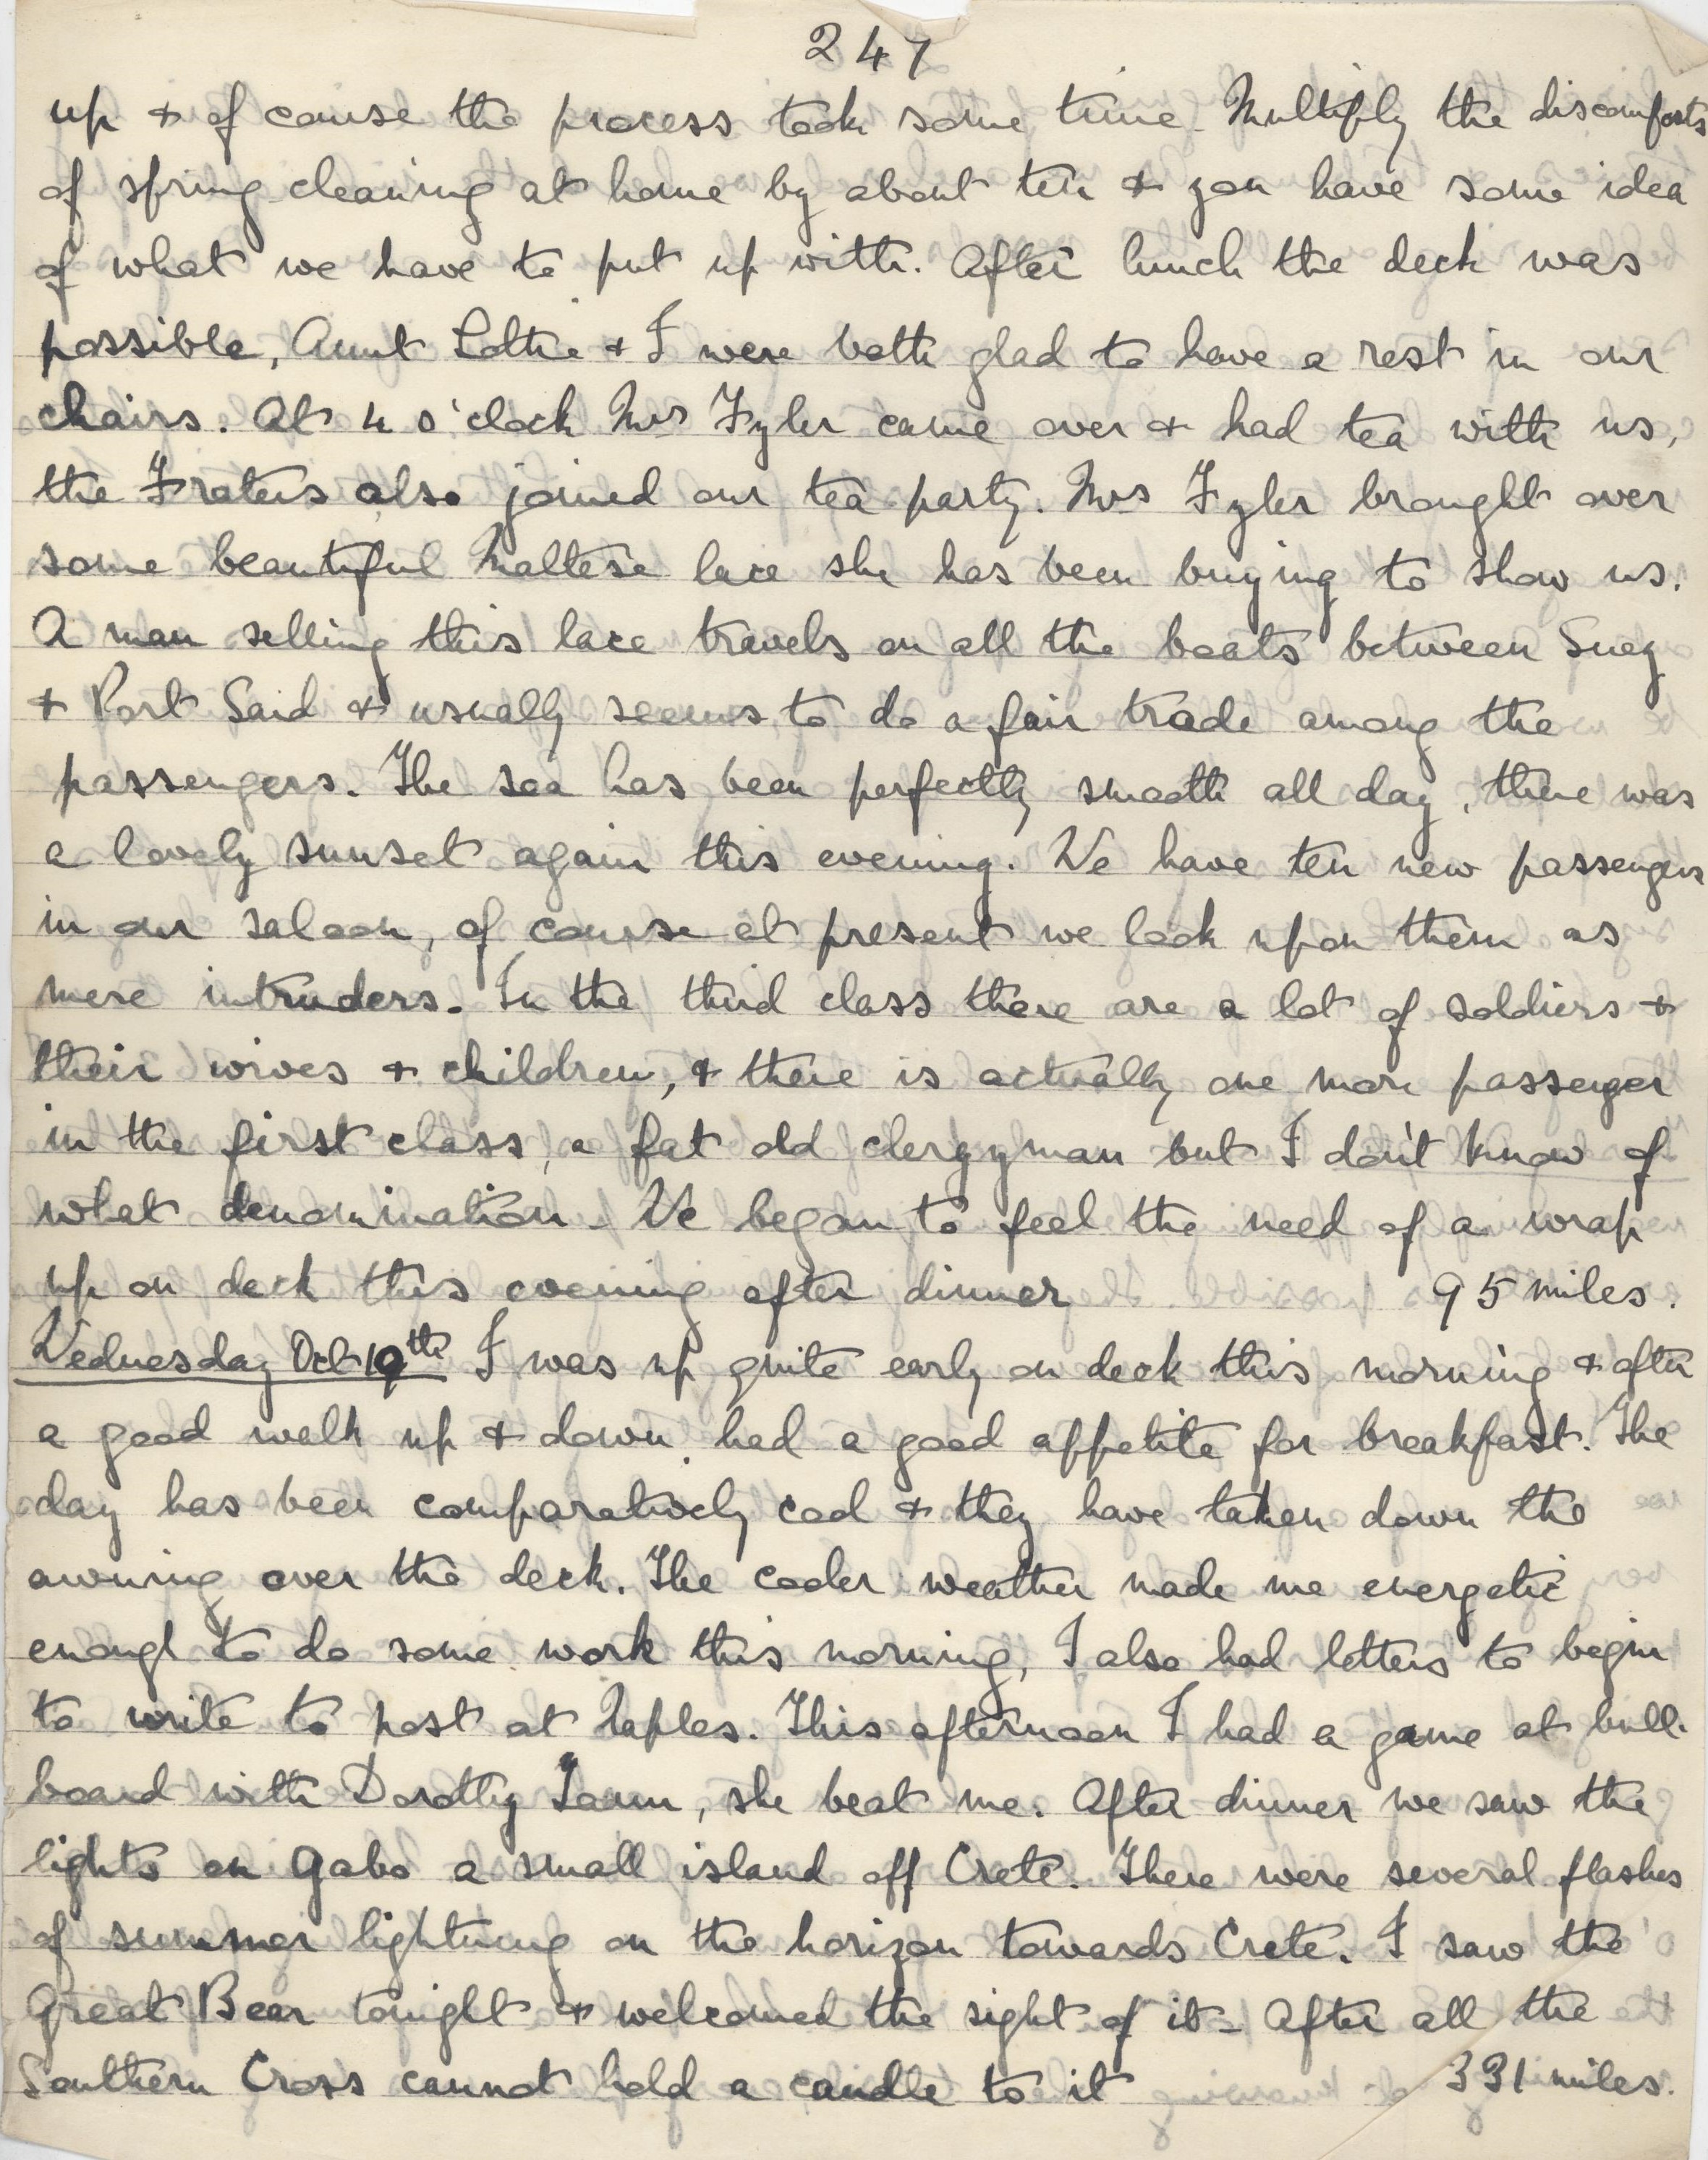 247
up & of couse the process took some time. Multiply the discomforts
of spring cleaning at home by about ten & you have some idea
of what we have to put up with. After lunch the deck was
possible, Aunt Lottie & I were both glad to have a rest in our
chairs. At 4 o'clock Mrs Fyler came over & had tea with us,
the Fraters also joined our tea party. Mrs Fyler brought over
some beautiful Maltese lace she has been buying to show us.
A man selling this lace travels on all the boats between Suez
& Port Said & usually seems to do a fair trade among the
passengers. The sea has been perfectly smooth all day, there was
a lovely sunset again this evening. We have ten new passengers
in our saloon, of course at present we look upon them as
mere intruders. In the third class there are a lot of soldiers &
their wives & children, & there is actually one more passenger
in the first class, a fat old clergyman but I don't know of
what denomination. We began to feel the need of a wrap
up on deck this evening after dinner 95 miles.
Wednesday Oct 19th I was up quite early on deck this morning & after
a good walk up & down had a good appetite for breakfast. The
day has been comparatively cool & they have taken down the
awning over the deck. The cooler weather made me energetic
enough to do some work this morning, I also had letters to begin
to write to post at Naples. This afternoon I had a game at bull-
board with Dorothy, she beat me. After dinner we saw the
lights on Gabo a small island off Crete. There were several flashes
of summer lightning on the horizon towards Crete. I saw the
Great Bear tonight & welcomed the sight of it - After all the
Southern Cross cannot hold a candle to it 331 miles.